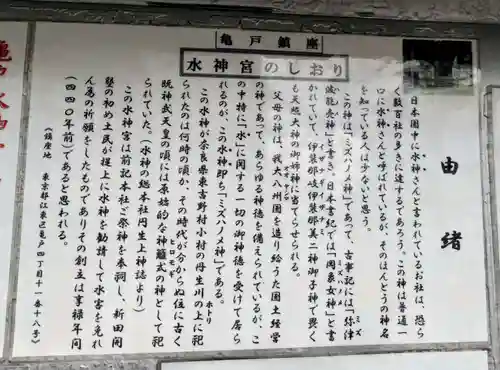 亀戸鎮座
水神宮のしおり
由緒
日本国中に水神さんと言われているお社は、恐ら
く数百社の多きに達するであろう。この神は普通一
口に水神さんと呼ばれているが、そのほんとうの神名
を知っている人は少ないと思う。
この神は「ミズハノメ神」であって、古事記には「弥津
波能売神」と書き、日本書紀では「岡象女神」と書
かれていて、伊弉那岐伊弉那美二神御子神で畏く
も天照大神の御姉神に当てらせられる。
父母の神は、我大八州国を造り給うた国土経営
の神であって、あらゆる神徳を備えられているが、こ
の中特に「水」に関する一切の御神徳を受けて居ら
れるのが、この水神即ち「ミズハノメ神」である。
この水神が奈良県東吉野村小村の丹生川の上に祀
られたのは何時の頃か、その時代が分からぬ位に古く
既神武天皇の頃には原始的な神籬式の神として祀
られていた。(水神の総本社丹生上神誌より)
この水神宮は前記本社ご祭神を奉祠し、新田開
墾の初め土民が堤上に水神を勧請して水害を免れ
ん為の祈願をしたものでありその創立は享禄年間
(四四〇年前)であると思われる。
(鎮座地 東京都江東区亀戸四丁目十一番十八号)